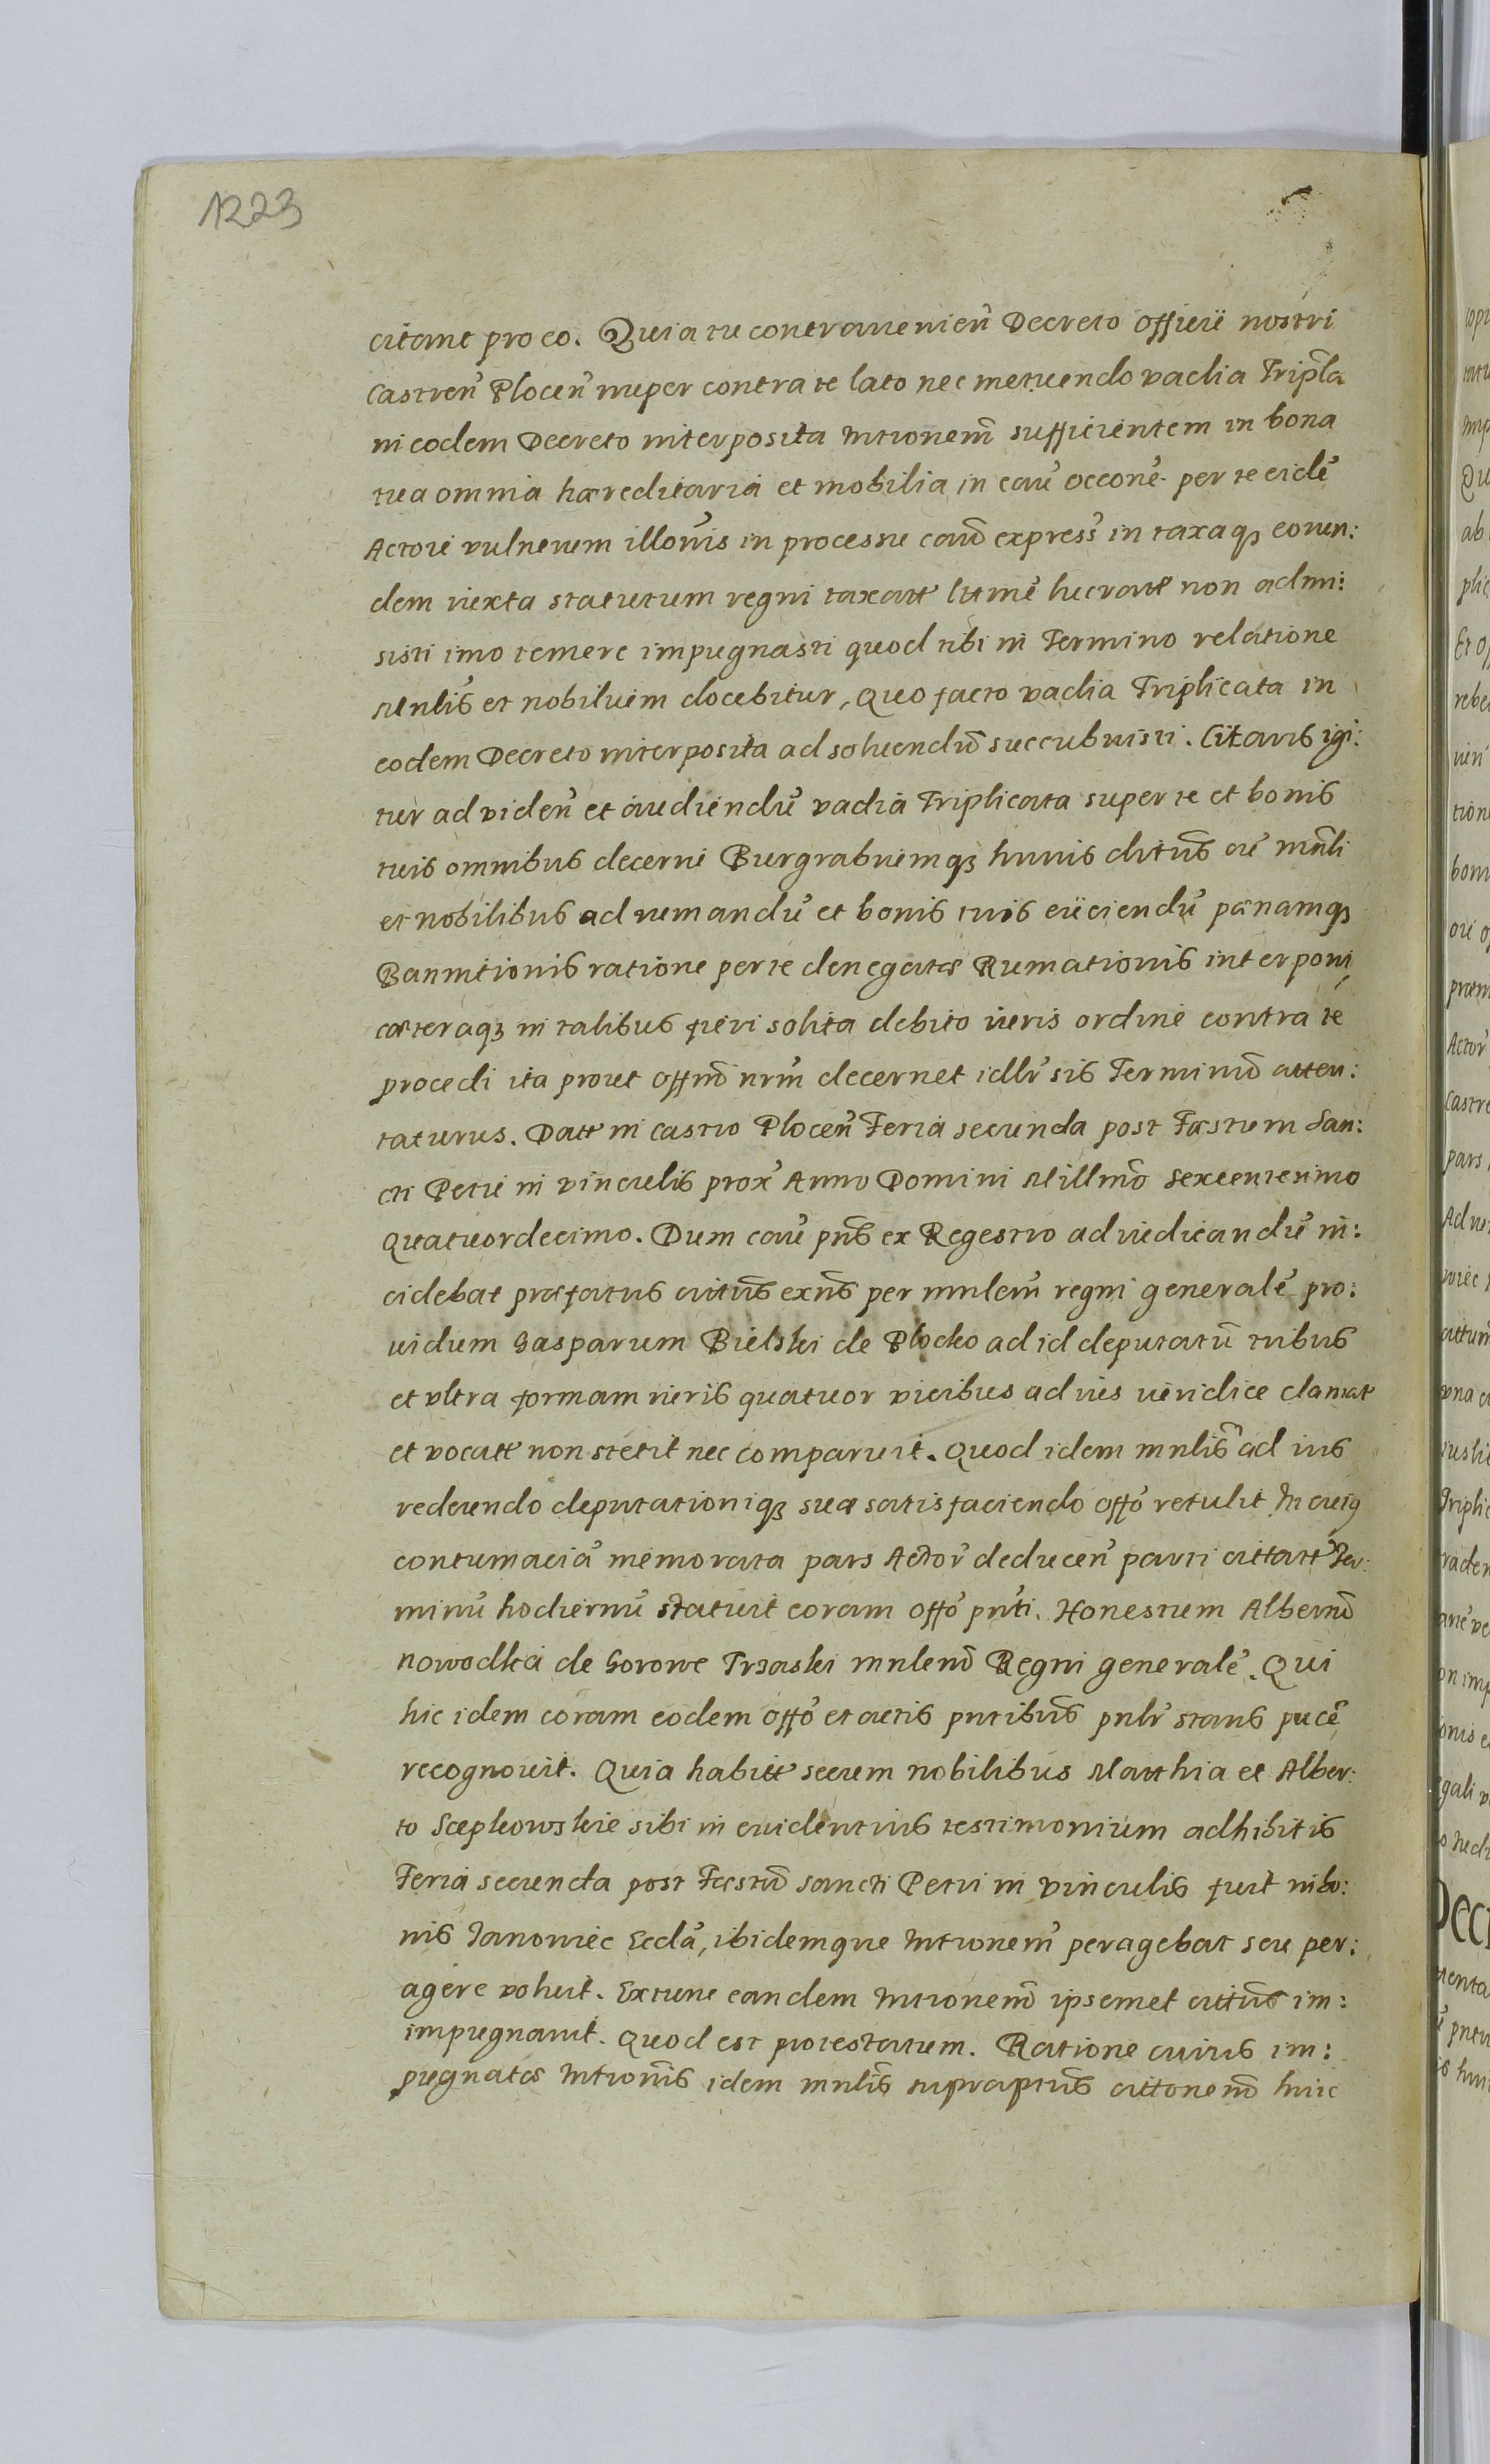 1223
citant pro eo. Quia tu contravenień Decreto officii nostri
Castreń Płoceń nuper contra te lato nec metuendo vadia Tripla
in eodem Decreto interposita Intronem̃ sufficientem in bona
tua omnia hæreditaria et mobilia in cau͂ occone͂ per te eide͂
Actori vulnerum illouis in processu caus͂ express͂ in taxaqꝫ eorun:
dem iuxta statutum regni taxatt littme͂ lucratt non admi:
sisti imo temere impugnasti quod tibi in Termino relatione
Mnlis et nobilium docebitur, Quo facto vadia Triplicata in
eodem Decreto interposita ad soluendu͂ succubuisti. Citaris igi:
tur ad videń et audiendu͂ vadia Triplicata super te et bonis
tuis omnibus decerni Burgrabiumqꝫ huius citus͂ cu͂ mnli
et nobilibus ad rumandu͂ et bonis tuis eiiciendu͂ pænamqꝫ
Bannitionis ratione per te denegatæ Rumationis interponi,
cæteraqꝫ in talibus fieri solita debito iuris ordine contra te
procedi ita prout offm͂ nrm͂ decernet idlr͂ sis Terminu͂ atten:
taturus. Datt in Castro Płoceń Feria secunda post Fæstum San:
cti Petri in vinculis prox͂ Anno Domini Millmo͂ sexcentesimo
Quatuordecimo. Dum cau͂ pns͂ ex Regestro ad iudicandu͂ in:
cidebat præfatus citus͂ exns͂ per mnlem͂ regni generale͂ pro:
uidum Gasparum Bielski de Płocko ad id deputatu͂ tribus
et vltra formam iuris quatuor vicibus ad ius iuridice clamatt
et vocatt non stetit nec comparuit. Quod idem mnlis͂ ad ius
redeundo deputationiqꝫ suæ satisfaciendo offo͂ retulit In cuiꝰ
contumacia͂ memorata pars Actor͂ deducen͂ parti citatt Ter:
minu͂ hodiernu͂ statuit coram offo͂ pn͂ti. Honestum Albertu͂
nowodka de Gorowe Trzaski mnlem͂ Regni generale͂. Qui
hic idem coram eodem offo͂ et actis pntibus͂ pnlr͂ stans puce͂
recognouit. Quia habitt secum nobilibus Matthia et Alber:
to Scepkowskie sibi in euidentius testimonium adhibitis
Feria secunda post Fæstu͂ sancti Petri in vinculis fuit in bo:
nis Janowiec Eccla͂, ibidemque Intronem͂ peragebat seu per:
agere voluit. Extunc eandem Intronem͂ ipsemet cittus͂ im:
impugnauit. Quod est protestatum. Ratione cuius im:
pugnatæ Intronis͂ idem mnlis͂ supraptus͂ cittonem͂ huic